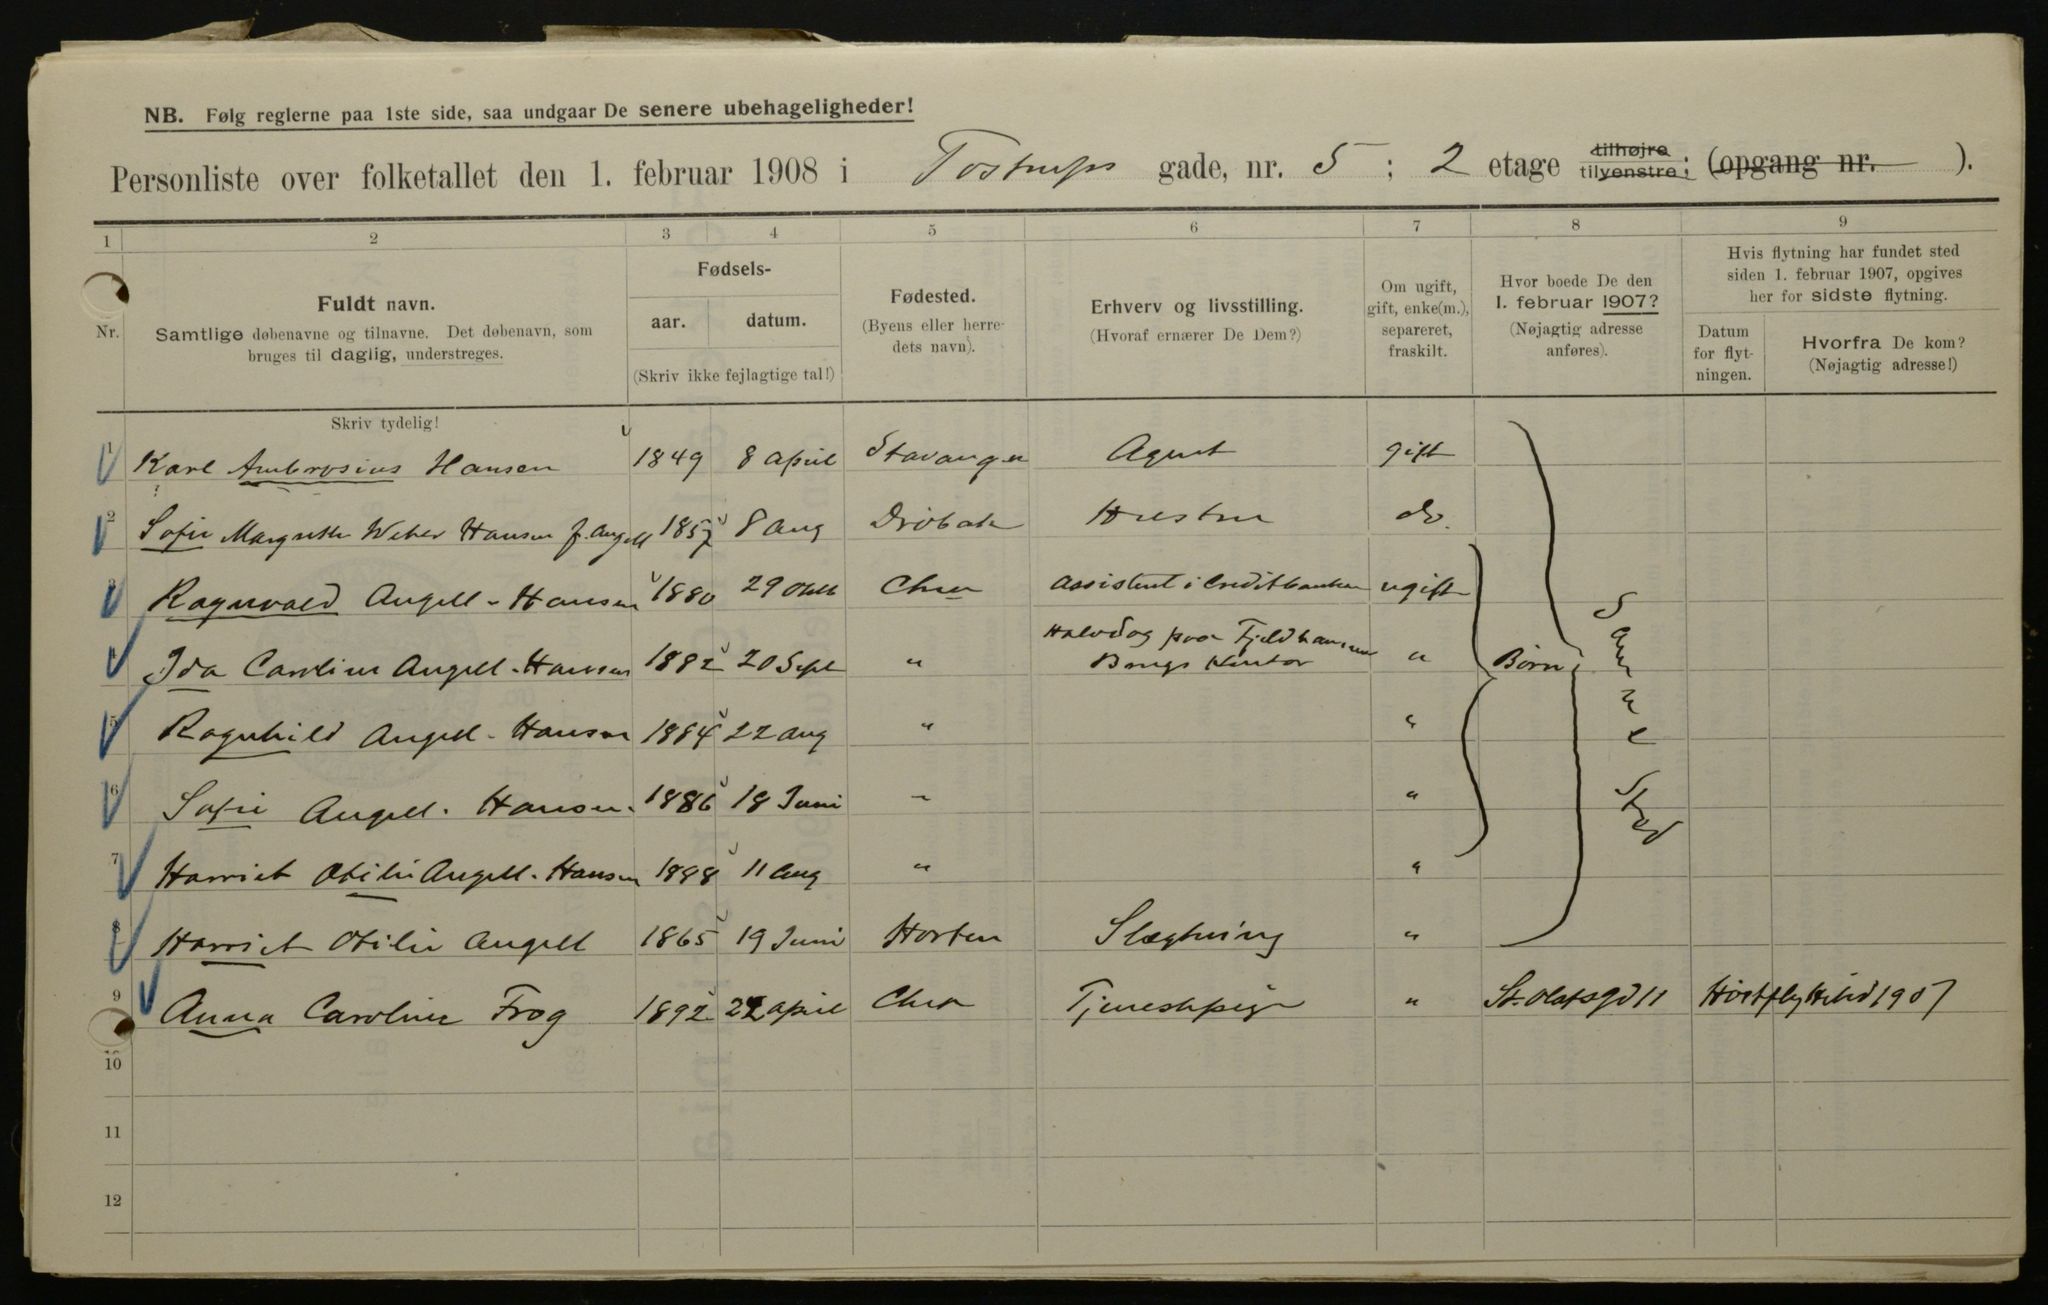 NB. Følg reglerne paa 1ste side, saa undgaar De senere ubehageligheder!
Personliste over folketallet den 1. februar 1908 i Tostrups gade, nr. 5 ; 2 etage tilhøjre tilvenstre; (opgang nr. ).
1 2 3 4 5 6 7 8 9
Nr.
Fuldt navn.
Samtlige døbenavne og tilnavne. Det døbenavn, som
bruges til daglig, understreges.
Fødsels-
aar. datum.
(Skriv ikke fejlagtige tal!)
Fødested.
(Byens eller herre-
dets navn).
Erhverv og livsstilling.
(Hvoraf ernærer De Dem?)
Om ugift,
gift, enke(m.),
separeret,
fraskilt.
Hvor boede De den
1. februar 1907?
(Nøjagtig adresse
anføres).
Hvis flytning har fundet sted
siden 1. februar 1907, opgives
her for sidste flytning.
Datum
for flyt-
ningen.
Hvorfra De kom?
(Nøjagtig adresse!)
Skriv tydelig!
1 Karl Ambrosius Hansen 1849 8 april Stavanger Agent gift
2 Sofie Margrethe Weber Hansen f. Angell 1857 8 Aug Drøbak Hustru do.
3 Ragnvald Angell-Hansen 1880 29 Okt Chra Assistent i Creditbanken ugift
4 Ida Caroline Angell-Hansen 1882 20 Sept " Halvdag paa
Brugs Kontor " Børn
5 Ragnhild Angell-Hansen 1884 22 Aug " "
6 Sofie Angell-Hansen 1886 18 Juni " "
7 Harriet Otilie Angell-Hansen 1888 11 Aug " "
Samme Sted
8 Harriet Otilie Angell 1865 19 Juni Horten Slægtning "
9 Anna Caroline Frog 1892 22 april Chra Tjenestepige " St. Olafsgd 11 1907
10
11
12